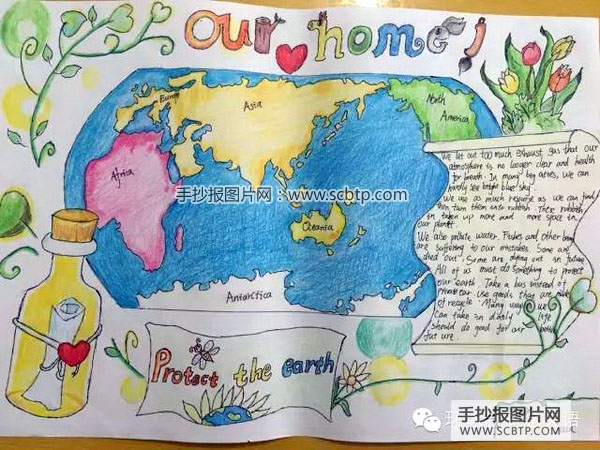 our home!
Europe
Asia
North
America
Africa
Oceania
Antarctica
手抄报图片网：www.scbtp.com
We let out too much exhaust gas that our
atmosphere is no longer clear and health
for breath. In many big we can
see bright blue sky.
We use as much as we can
turn them into rubbish. These rubbish
taken up more and more space in
our planet.
We also pollute water. and other
are suffering to our mistakes. Some are
died "out", Some are dying out in future
All of us must do something to protect
our earth. Take a bus instead of
private car. Use goods that are
of recycle. Many we
Can take in daily life
should do good for our
future.
Protect the earth
手抄报图片网
WWW.SCBTP.COM